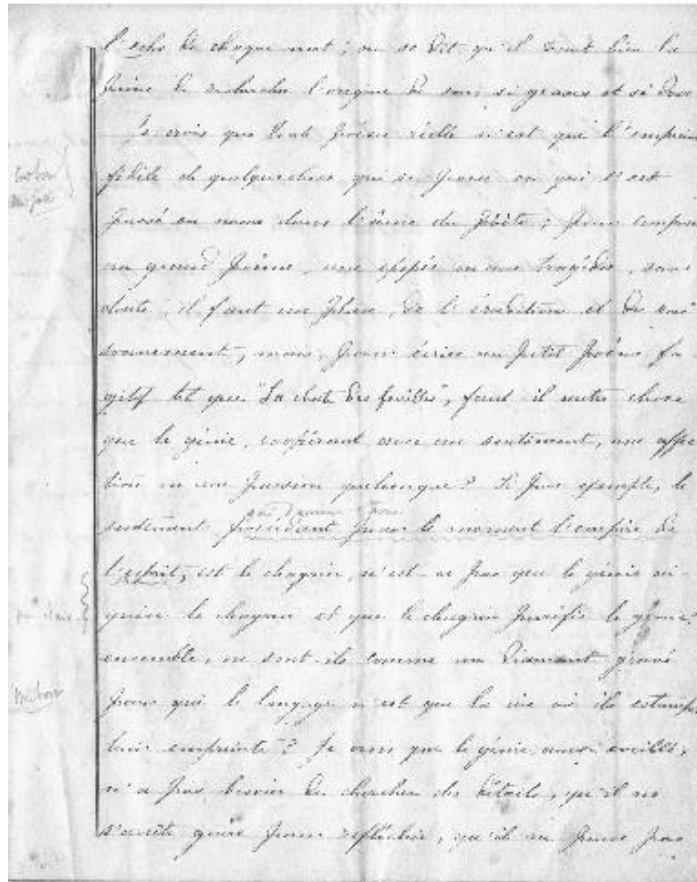 l'echo de chaque mot ; on se dit qu'il vaut bien la
peine de rechercher l'origine de sons si graves et si doux
Je crois que toute poësie réelle n'est que l'emprein
fidèle de quelquechose qui se passe ou qui s'est
passé en nous dans l'âme du poëte ; pour compose
un grand poëme, une épopée ou une tragédie, sans
doute, il faut un plan, de l'érudition et du rai
sonnement, mais, pour écrire un petit poëme fu
gitif tel que "La chute des feuilles", faut il autre chose
que le génie, coopérant avec un sentiment, une affec
tion ou une passion quelconque? Si par exemple, le
sentiment possédant pour le moment l'empire de
l'esprit, est le chagrin, n'est-ce pas que le génie ai
guise le chagrin et que le chagrin purifie le génie?
ensemble, ne sont-ils comme un diamant gravé
pour qui le langage n'est que la cire où ils estamp
leur empreinte? Je crois que le génie, ainsi éveillé,
n'a pas besoin de chercher des détails, qu'il ne
s'arrête guère pour réfléchir, qu'il ne pense pas